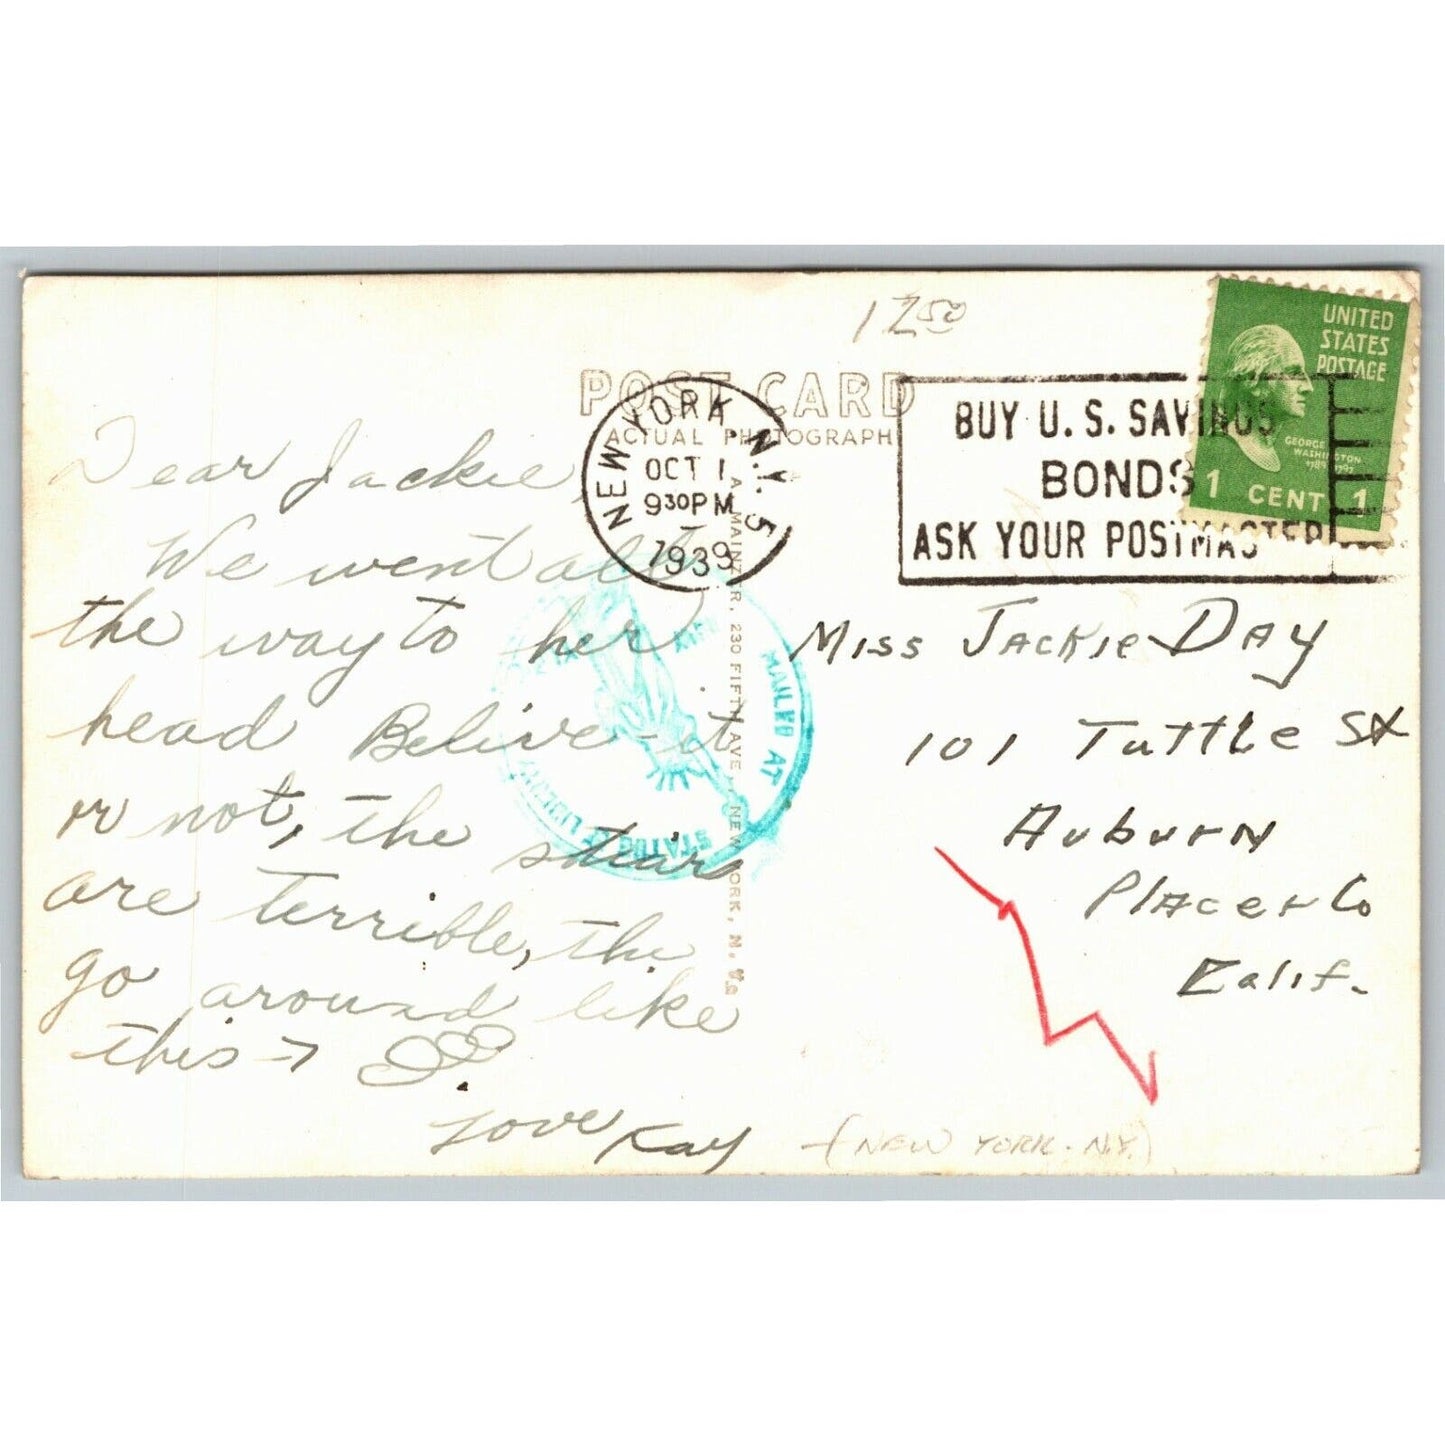 17.50
POST CARD
ACTUAL PHOTOGRAPH
NEW YORK, N.Y. 5
OCT 1
9 30 PM
1939
BUY U.S. SAVINGS
BONDS
ASK YOUR POSTMASTER
UNITED
STATES
POSTAGE
GEORGE
WASHINGTON
1789-1797
1 CENT 1
Dear Jackie,
We went all
the way to her
head Belive it
or not, the stiars
are terrible, the
go around like
this →
Love Kay
MAILED AT
STATUE OF LIBERTY
A. MAINZER, 230 FIFTH AVE., NEW YORK, N. Y.
Miss Jackie Day
101 Tuttle St
Auburn
Placer Co
Calif.
(NEW YORK - N.Y.)